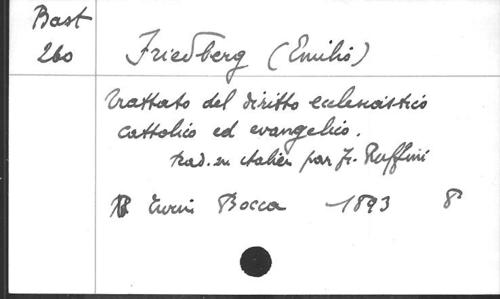 Bast
260
Friedberg (Emilio)
Trattato del diritto ecclesiastico
cattolico ed evangelico.
trad. en italien par Fr. Ruffini
Turin Bocca 1893 8°